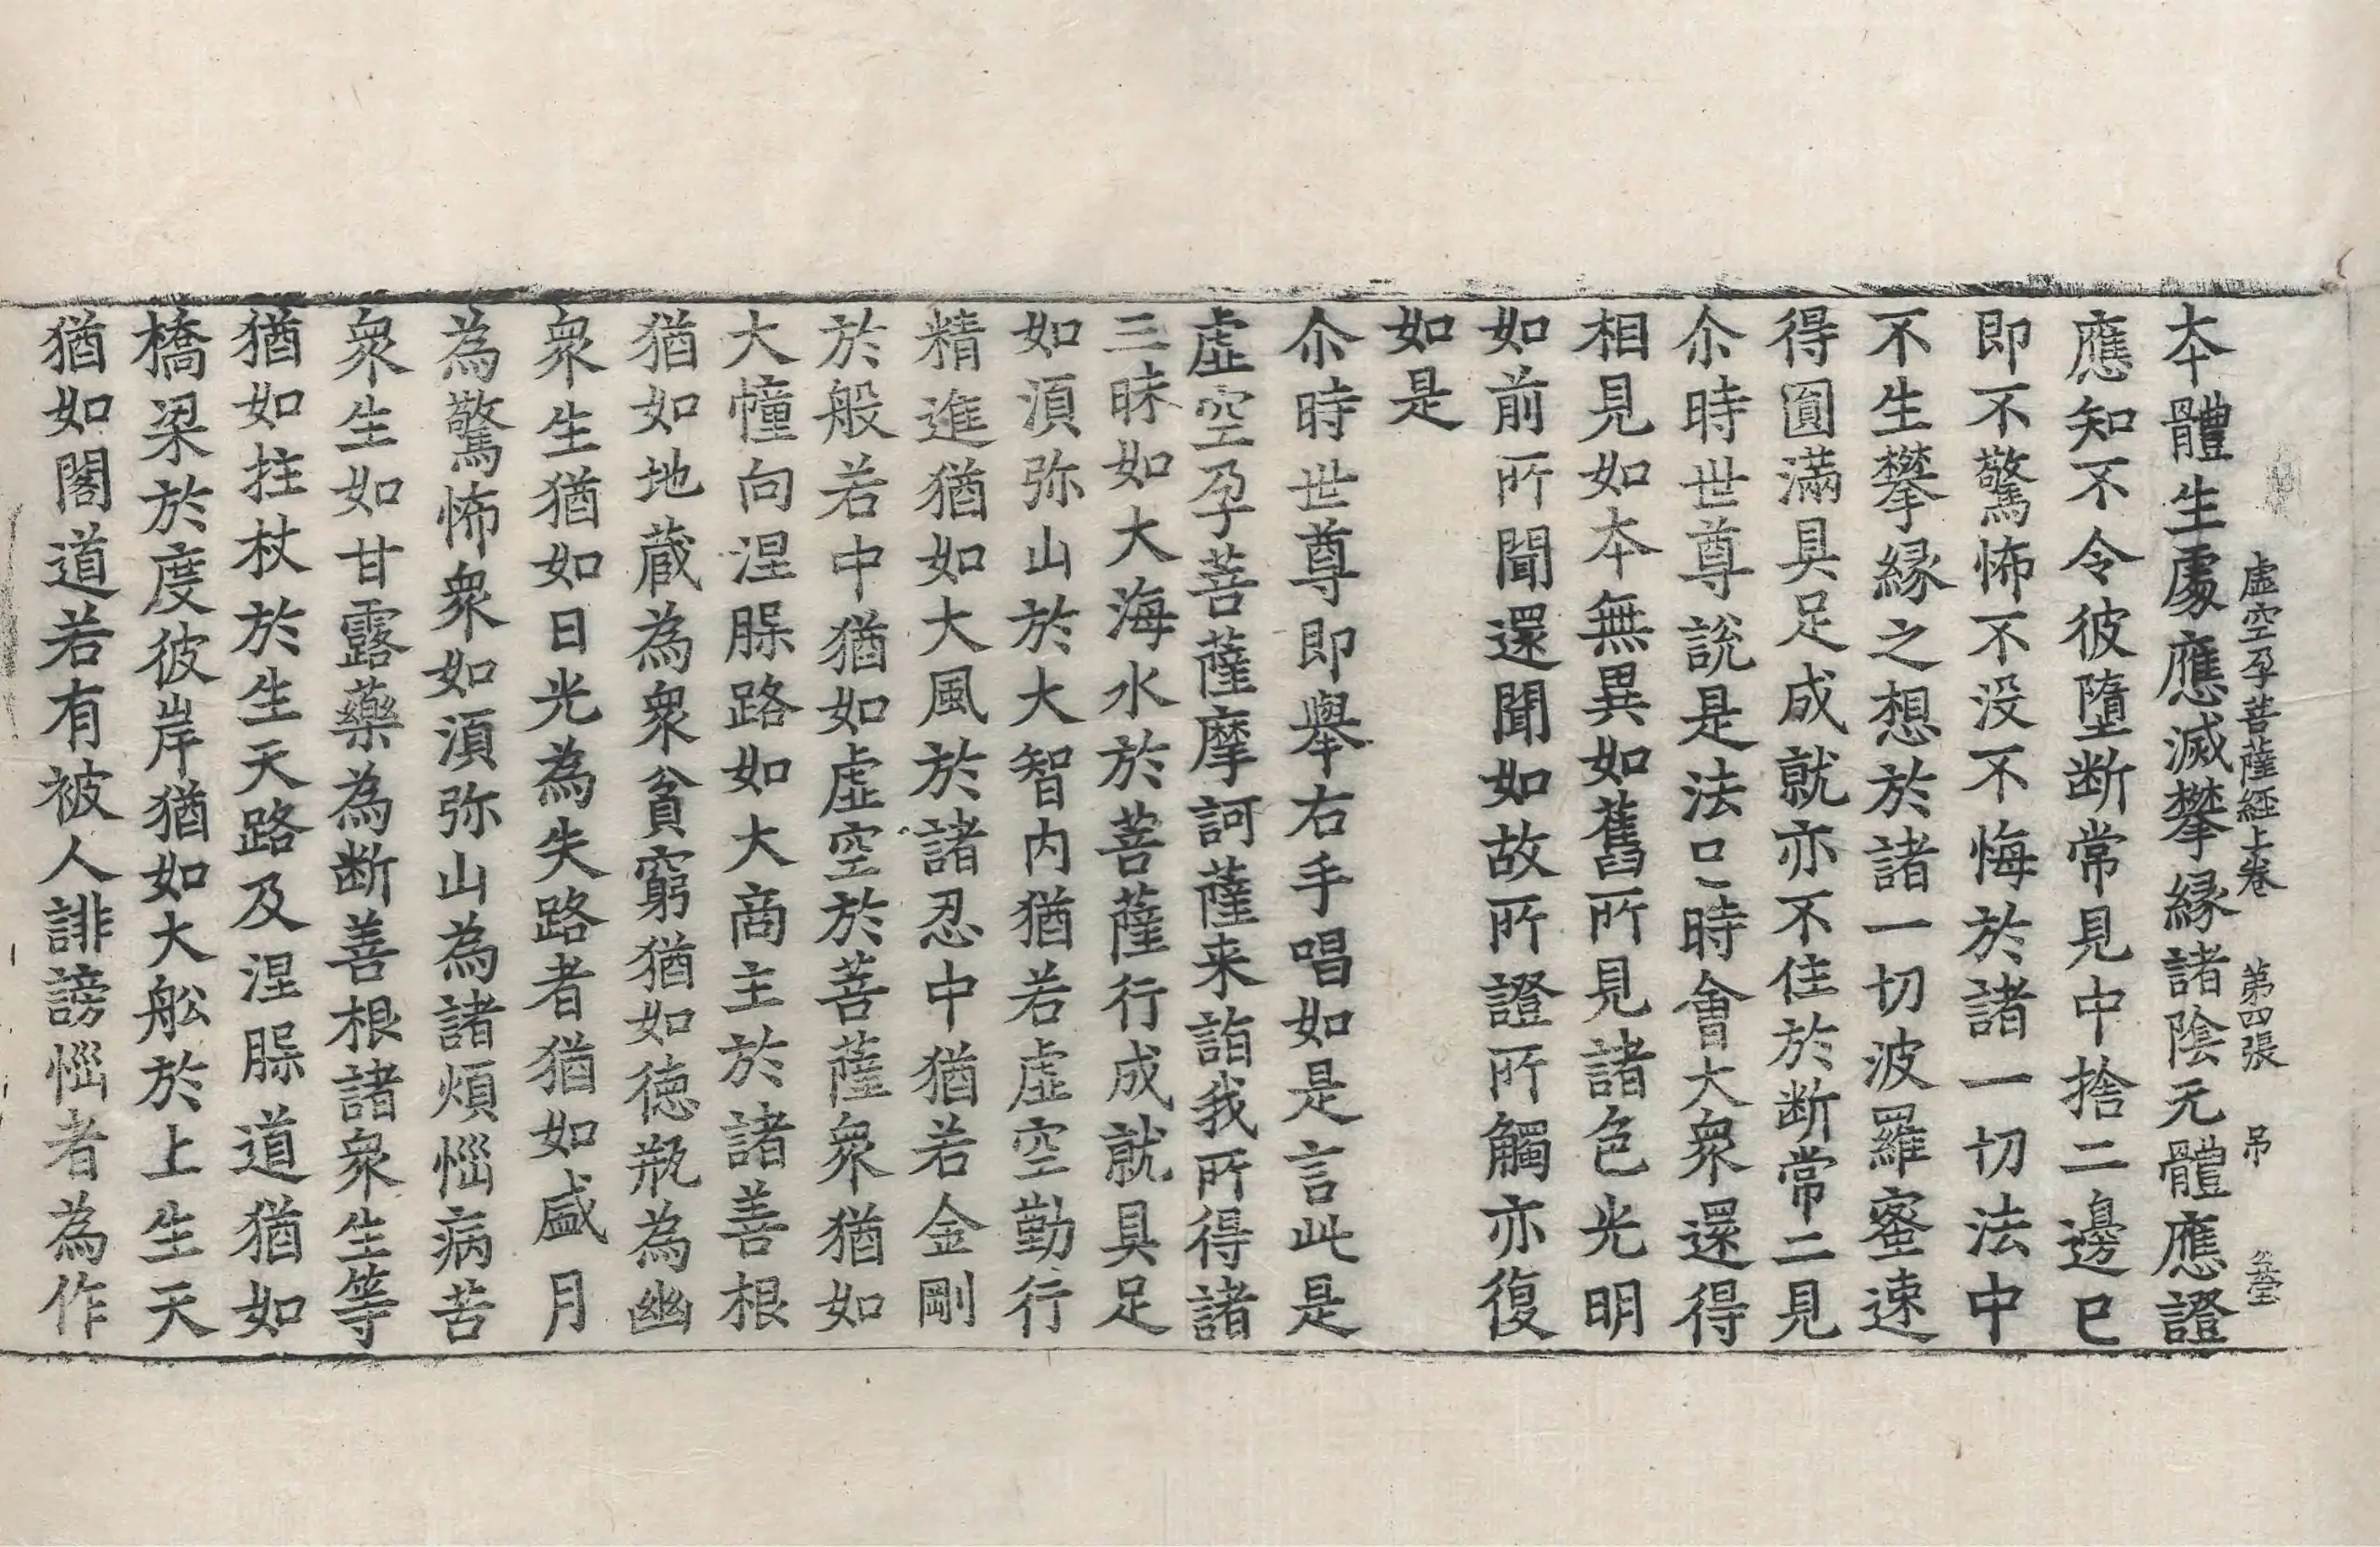 虛空孕菩薩經上卷　第四張　弔
本體生處應滅攀緣諸陰元體應證
應知不令彼墮断常見中捨二邊已
即不驚怖不没不悔於諸一切法中
不生攀縁之想於諸一切波羅蜜速
得圓滿具足成就亦不住於断常二見
尒時世尊説是法已時會大衆還得
相見如本無異如舊所見諸色光明
如前所聞還聞如故所證所觸亦復
如是
尒時世尊即舉右手唱如是言此是
虛空孕菩薩摩訶薩来詣我所得諸
三昧如大海水於菩薩行成就具足
如湏弥山於大智内猶若虛空勤行
精進猶如大風於諸忍中猶若金剛
於般若中猶如虛空於菩薩衆猶如
大幢向涅牃路如大商主於諸善根
猶如地蔵為衆貧窮猶如徳瓶為幽
衆生猶如日光為失路者猶如盛月
為驚怖衆如湏弥山為諸煩惱病苦
衆生如甘露藥為断善根諸衆生等
猶如拄杖於生天路及涅牃道猶如
橋梁於度彼岸猶如大舩於上生天
猶如閣道若有被人誹謗惱者為作